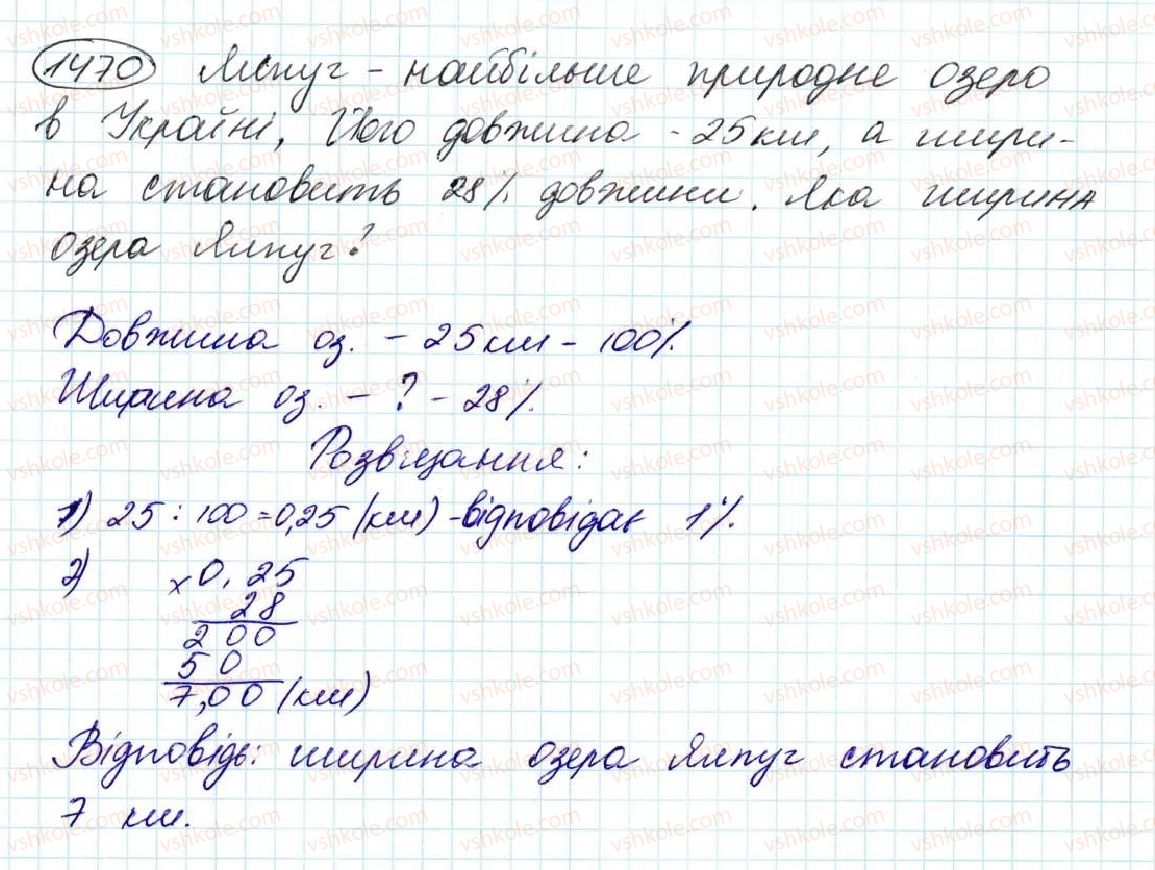 1470 Ялпуг - найбільше природне озеро
в Україні, Його довжина - 25 км, а шири-
на становить 28% довжини. Яка ширина
озера Ялпуг?
Довжина оз. - 25 км - 100%.
Ширина оз. - ? - 28%.
Розв'язання:
1) 25 : 100 = 0,25 (км) - відповідає 1%.
2) x 0,25
28
200
50
7,00 (км)
Відповідь: ширина озера Ялпуг становить
7 км.